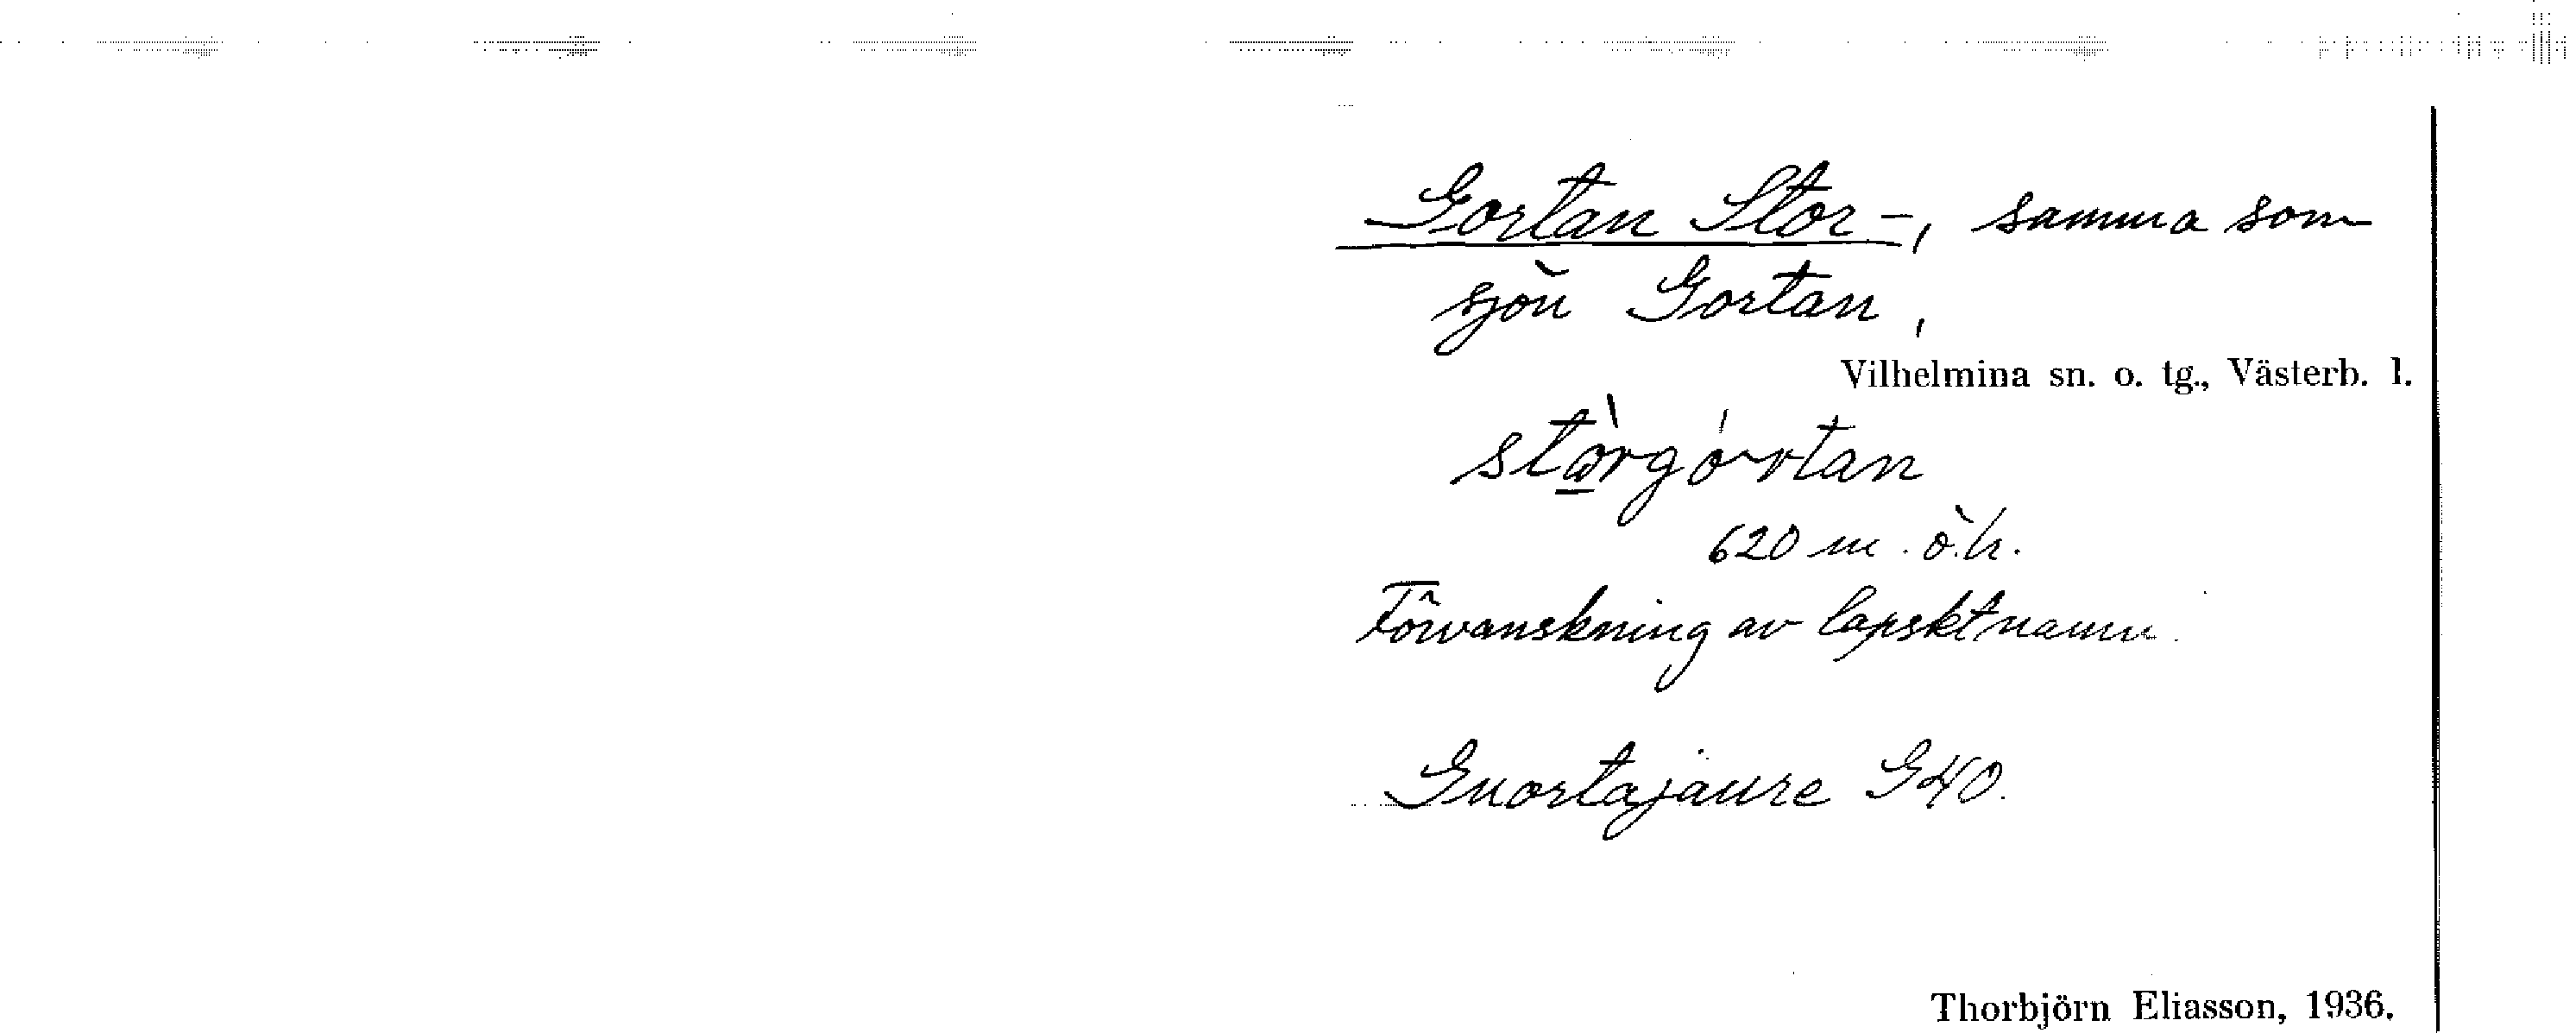 Gortan Stor-, samma som
sjön Gortan,
Vilhelmina sn. o. tg., Västerb. l.
stòrgórtan
620 m. ö.h.
Förvanskning av lapskt namn.
Guortajaure G40.
Thorbjörn Eliasson, 1936.